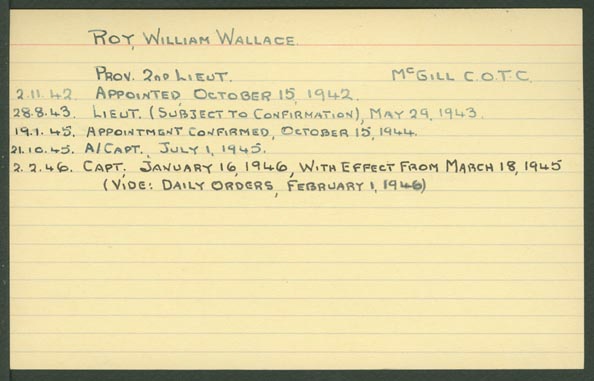 Roy, William Wallace.
Prov. 2nd Lieut. McGill C.O.T.C.
2.11.42. Appointed, October 15, 1942.
28.8.43. Lieut. (Subject to Confirmation), May 29, 1943.
19.1.45. Appointment Confirmed, October 15, 1944.
21.10.45. A/Capt., July 1, 1945.
2.2.46. Capt., January 16, 1946, With Effect From March 18, 1945
(Vide: Daily Orders, February 1, 1946)